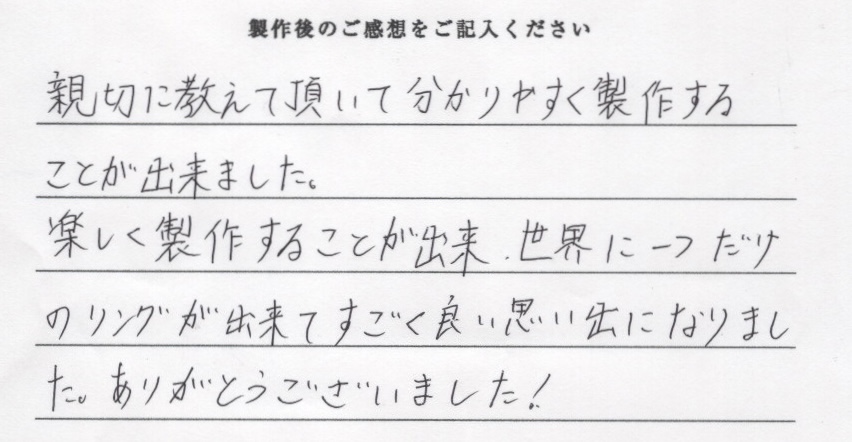 製作後のご感想をご記入ください
親切に教えて頂いて分かりやすく製作する
ことが出来ました。
楽しく製作することが出来、世界に一つだけ
のリングが出来てすごく良い思い出になりまし
た。ありがとうございました!